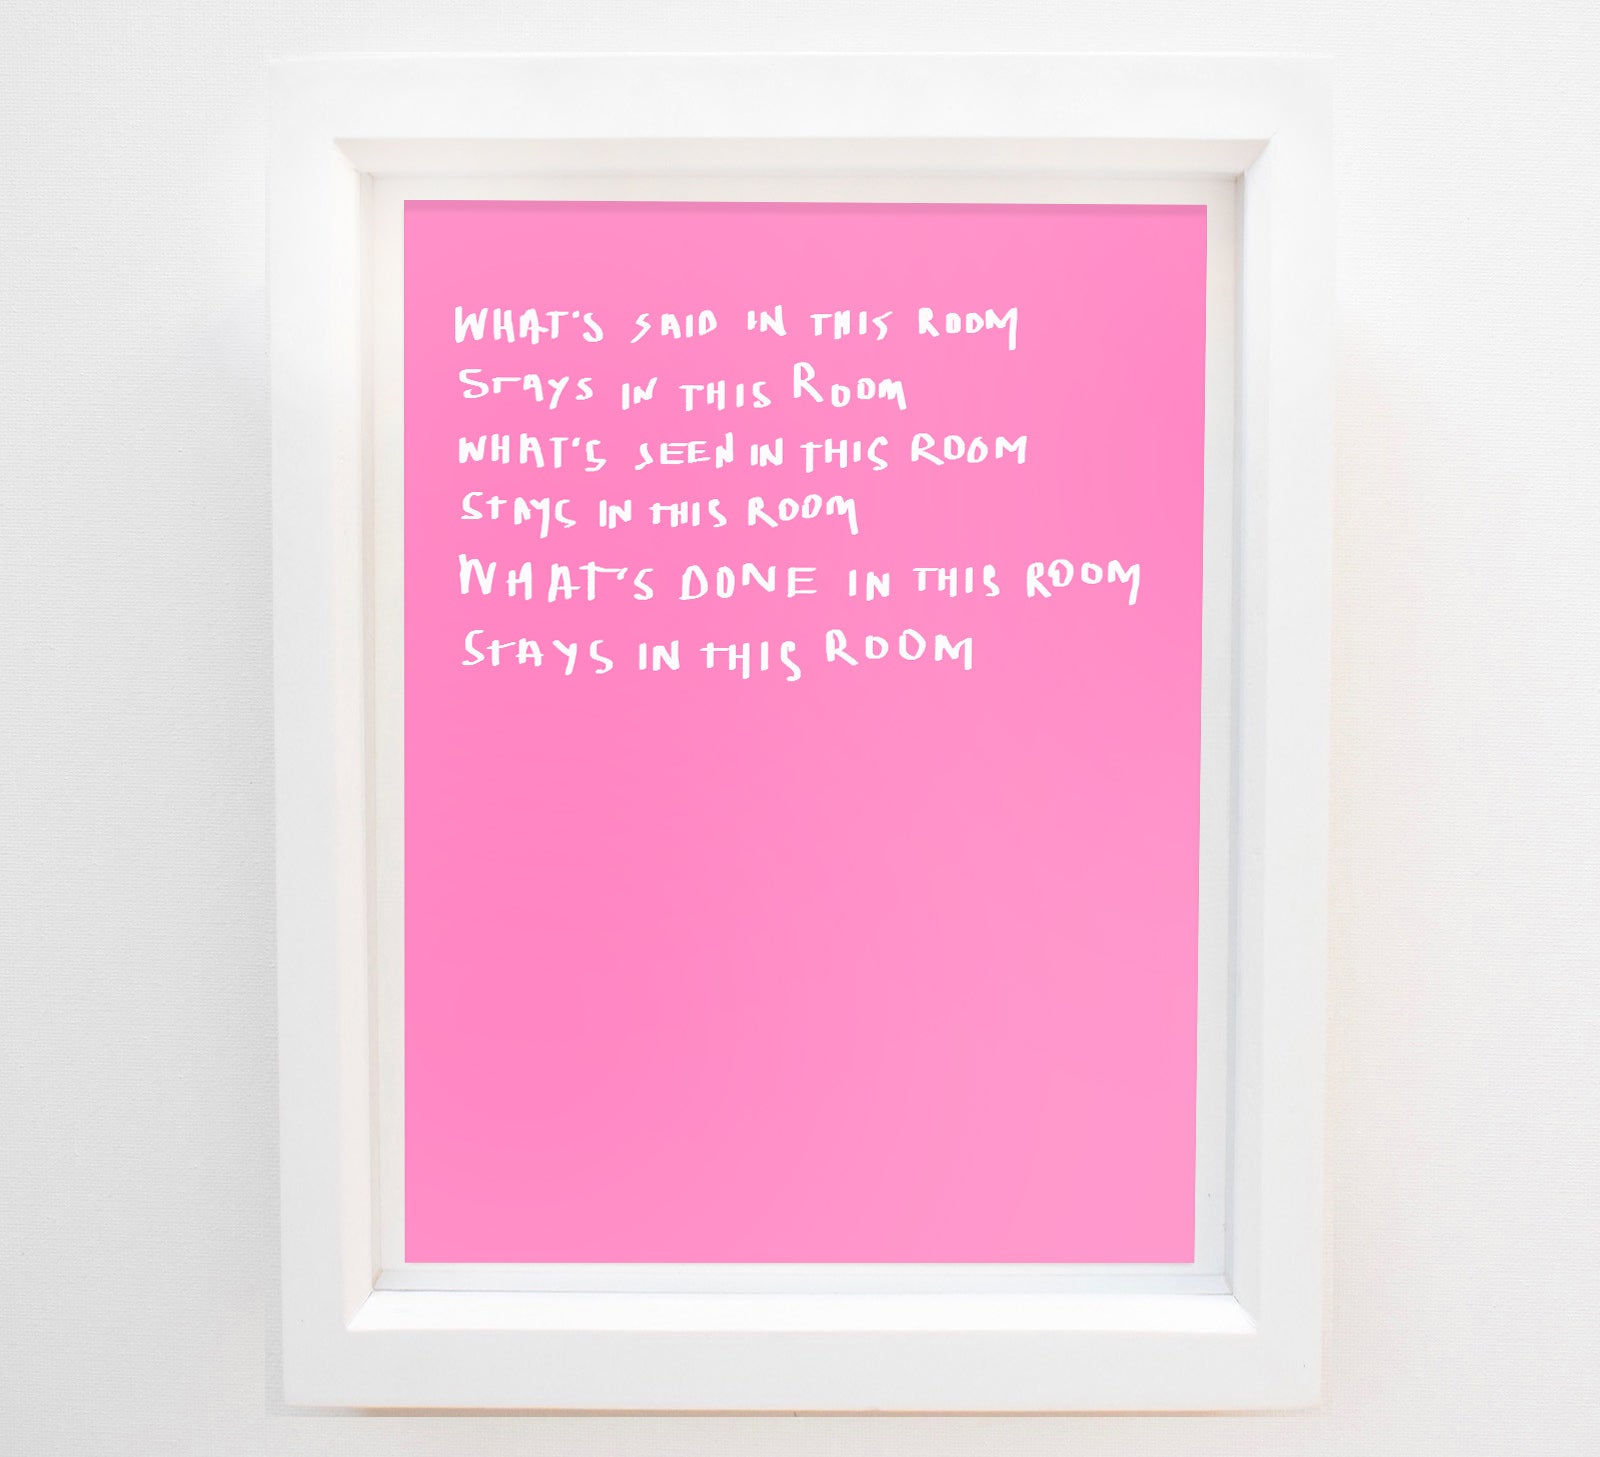 WHAT'S SAID IN THIS ROOM
STAYS IN THIS ROOM
WHAT'S SEEN IN THIS ROOM
STAYS IN THIS ROOM
WHAT'S DONE IN THIS ROOM
STAYS IN THIS ROOM